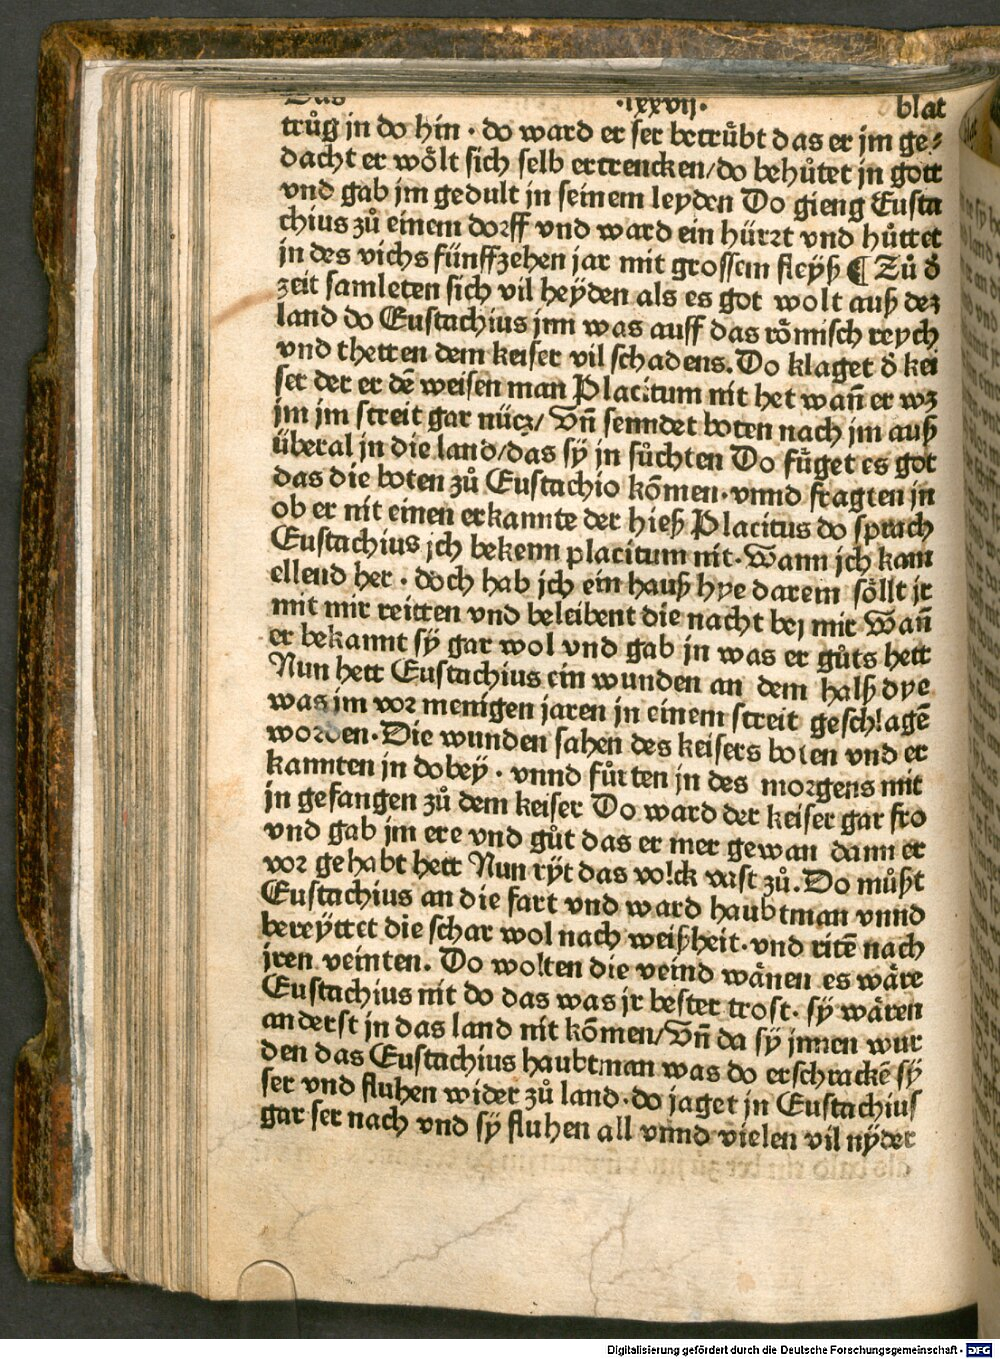 Das .lxxvij. blat
trůg jn do hin · do ward er ser betrůbt das er jm ge⸗
dacht er wo̊lt sich selb ertrencken/do behůtet jn gott
vnd gab jm gedult in seinem leyden Do gieng Eusta
chius zů einem dorff vnd ward ein hürrt vnd hůttet
jn des vichs fünffzehen jar mit grossem fleyß ¶ Zů d̕
zeit samleten sich vil heyden als es got wolt auß dez
land do Eustachius jnn was auff das ro̊misch reych
vnd thetten dem keiser vil schadens. Do klaget d̕ kei
ser der er dē weisen man Placitum nit het wañ er wz
jm jm streit gar nücz/ Vñ senndet boten nach jm auß
überal jn die land/das sÿ jn sůchten Do fůget es got
das die boten zů Eustachio ko̅men · vnnd fragten jn
ob er nit einen erkannte der hieß Placitus do sprach
Eustachius jch bekenn placitum nit · Wann jch kam
ellend her · doch hab jch ein hauß hye darein so̊llt jr
mit mir reitten vnd beleibent die nacht bej mir Wañ
er bekannt sÿ gar wol vnd gab jn was er gůts hett
Nun hett Eustachius ein wunden an dem halß dye
was jm vor menigen jaren jn einem streit geschlagē
worden · Die wunden sahen des keisers boten vnd er
kannten jn dobeÿ · vnnd fůrten jn des morgens mit
jn gefangen zů dem keiser Do ward der keiser gar fro
vnd gab jm ere vnd gůt das er mer gewan dann er
vor gehabt hett Nun rÿt das volck vast zů. Do můßt
Eustachius an die fart vnd ward haubtman vnnd
bereÿttet die schar wol nach weißheit · vnd ritē nach
jren veinten. Do wolten die veind wånen es wåre
Eustachius nit do das was jr bester trost · sÿ wåren
anderst jn das land nit ko̅men/Vñ da sÿ jnnen wur
den das Eustachius haubtman was do erschrackē sÿ
ser vnd fluhen wider zů land · do jaget jn Eustachius
gar ser nach vnd sÿ fluhen all vnnd vielen vil nÿder
Digitalisierung gefördert durch die Deutsche Forschungsgemeinschaft - DFG